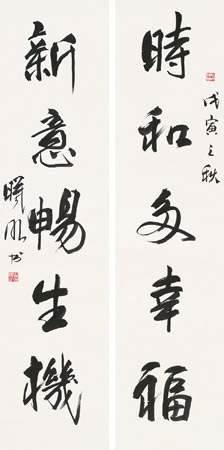 戊寅之秋
時和多幸福
新意暢生機
书